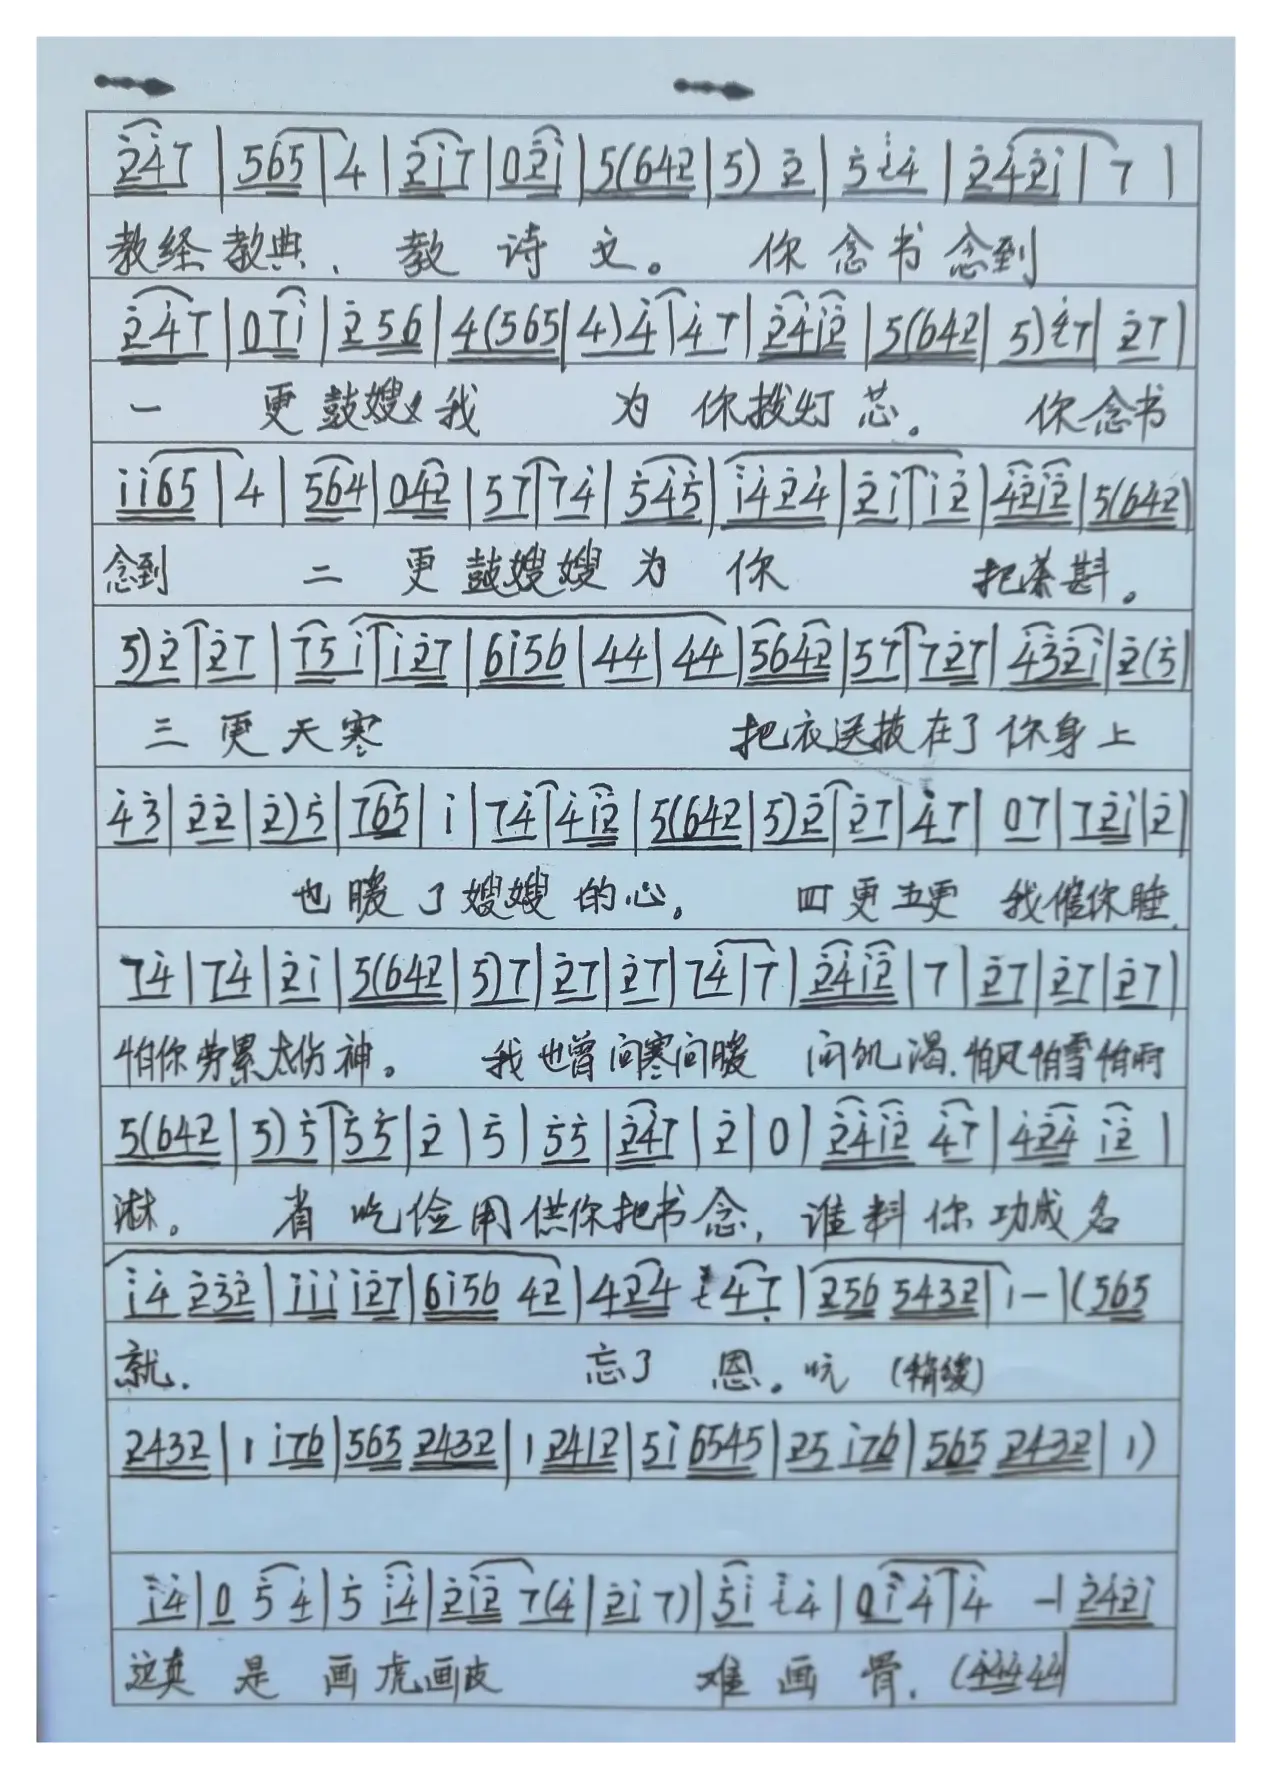 247 | 565 | 4 | 2i7 | 02i | 5(642 | 5) 2 | 5 i4 | 242i | 7 |
教经教典、教 诗 文。 你 念 书 念到
247 | 07i | 256 | 4(565 | 4)4 | 47 | 24i2 | 5(642 | 5)i7 | 27 |
一 更鼓嫂々我 为 你拨灯芯。 你念书
ii65 | 4 | 564 | 042 | 57 | 74 | 545 | i424 | 2i | i2 | 42i2 | 5(642 |
念到 二 更 鼓嫂嫂为 你 把茶斟。
5)2 | 27 | 75i | i27 | 6i56 | 44 | 44 | 5642 | 57 | 727 | 432i | 2(5 |
三 更 天寒 把衣送披在了你身上
43 | 22 | 2)5 | 765 | i | 74 | 4i2 | 5(642 | 5)2 | 27 | 47 | 07 | 72i | 2 |
也暖了嫂嫂的心。 四更五更 我催你睡,
74 | 74 | 2i | 5(642 | 5)7 | 27 | 27 | 74 | 7 | 24i2 | 7 | 27 | 27 | 27 |
怕你劳累太伤神。 我也曾问寒问暖 问饥渴,怕风怕雪怕雨
5(642 | 5)5 | 55 | 2 | 5 | 55 | 247 | 2 | 0 | 24i2 47 | 424 i2 |
淋。 省吃俭用供你把书念, 谁料你功成名
i4 232 | iii i27 | 6i56 42 | 424 47 | 256 5432 | i - | (565
就. 忘了 恩。吭 (稍缓)
2432 | 1 i76 | 565 2432 | 1 2412 | 5i 6545 | 25 i76 | 565 2432 | 1)
i4 | 0 5 4 | 5 i4 | 2i2 7(4 | 2i 7) | 5i i4 | 0i4 | 4 - | 242i
这真 是 画虎画皮 难画骨, (444 44|